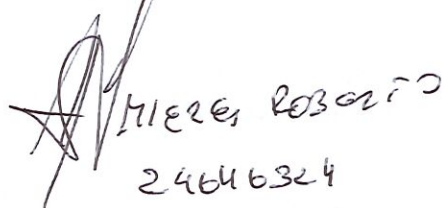 MIERES ROBERTO
24646324